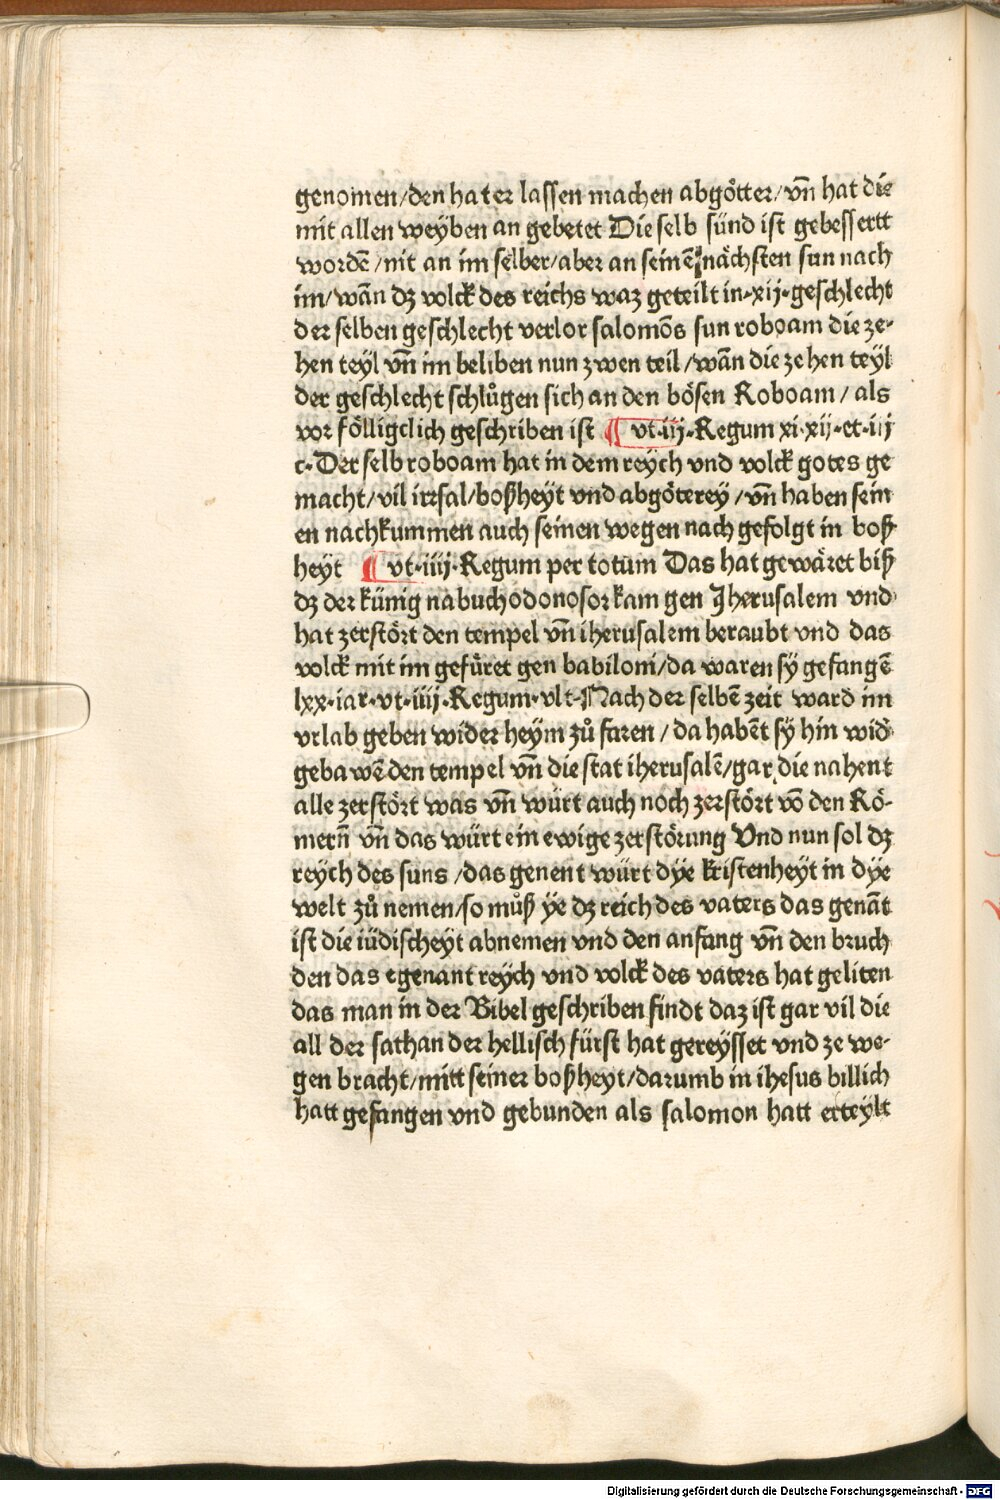 genomen/den hat er lassen machen abgötter/vn̄ hat die
mit allen weyben an gebetet Die selb sünd ist gebessertt
wordē/nit an im selber/aber an seinē nächsten sun nach
im/wān dz volck des reichs waz geteilt in·xij·geschlecht
der selben geschlecht verlor salomōs sun roboam die ze-
hen teyl vn̄ im beliben nun zwen teil/wān die zehen teyl
der geschlecht schlůgen sich an den bösen Roboam/als
vor fölligclich geschriben ist ¶ vt·iij·Regum xi·xij·et·iij
c·Der selb roboam hat in dem reych vnd volck gotes ge
macht/vil irrsal/boßheyt vnd abgöterey/vn̄ haben sein
en nachkummen auch seinen wegen nach gefolgt in boß
heyt ¶ vt·iiij·Regum per totum Das hat gewäret biß
dz der künig nabuchodonosor kam gen Jherusalem vnd
hat zerstört den tempel vn̄ iherusalem beraubt vnd das
volck mit im gefüret gen babiloni/da waren sy gefangē
lxx·iar·vt·iiij·Regum·vlt·Nach der selbē zeit ward im
vrlab geben wider heym zů faren/da habēt sy hin wid̕
gebawē den tempel vn̄ die stat iherusalē/gar die nahent
alle zerstört was vn̄ würt auch noch zerstört vō den Rö-
mern̄ vn̄ das würt ein ewige zerstörung Vnd nun sol dz
reych des suns/das genent würt dye kristenheyt in dye
welt zů nemen/so můß ye dz reich des vaters das genāt
ist die iüdischeyt abnemen vnd den anfang vn̄ den bruch
den das egenant reych vnd volck des vaters hat geliten
das man in der Bibel geschriben findt daz ist gar vil die
all der sathan der hellisch fürst hat gereysset vnd ze we-
gen bracht/mitt seiner boßheyt/darumb in ihesus billich
hatt gefangen vnd gebunden als salomon hatt erteylt
Digitalisierung gefördert durch die Deutsche Forschungsgemeinschaft - DFG